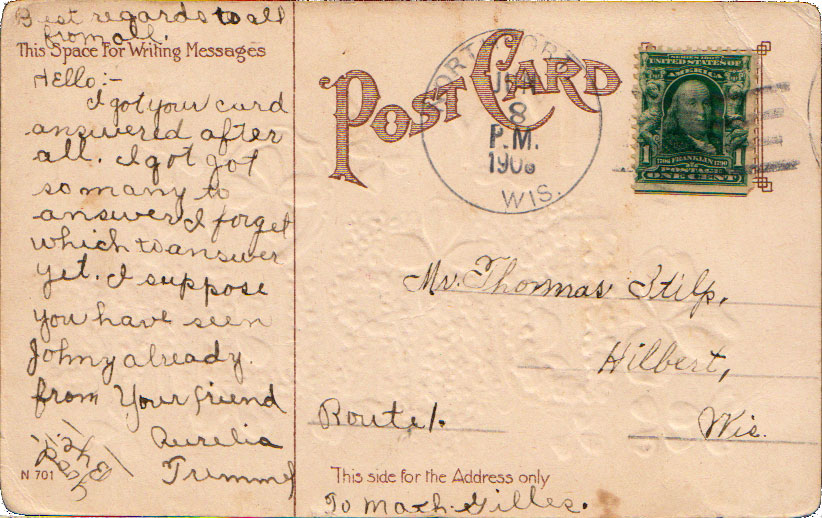 Best regards to all
from all.
This Space For Writing Messages
Hello:-
I got your card
answered after
all. I got got
so many to
answer I forget
which to answer
yet. I suppose
you have seen
Johny already.
from Your friend
Aurelia
Tremmel
Good
Bye.
N 701
POST CARD
PORT
JAN
8
P.M.
1908
WIS.
SERIES 1902
UNITED STATES OF
AMERICA
1706 FRANKLIN 1790
1 1
POSTAGE
ONE CENT
Mr. Thomas Stilp,
Hilbert,
Route 1.
Wis.
This side for the Address only
To Math. Gilles.